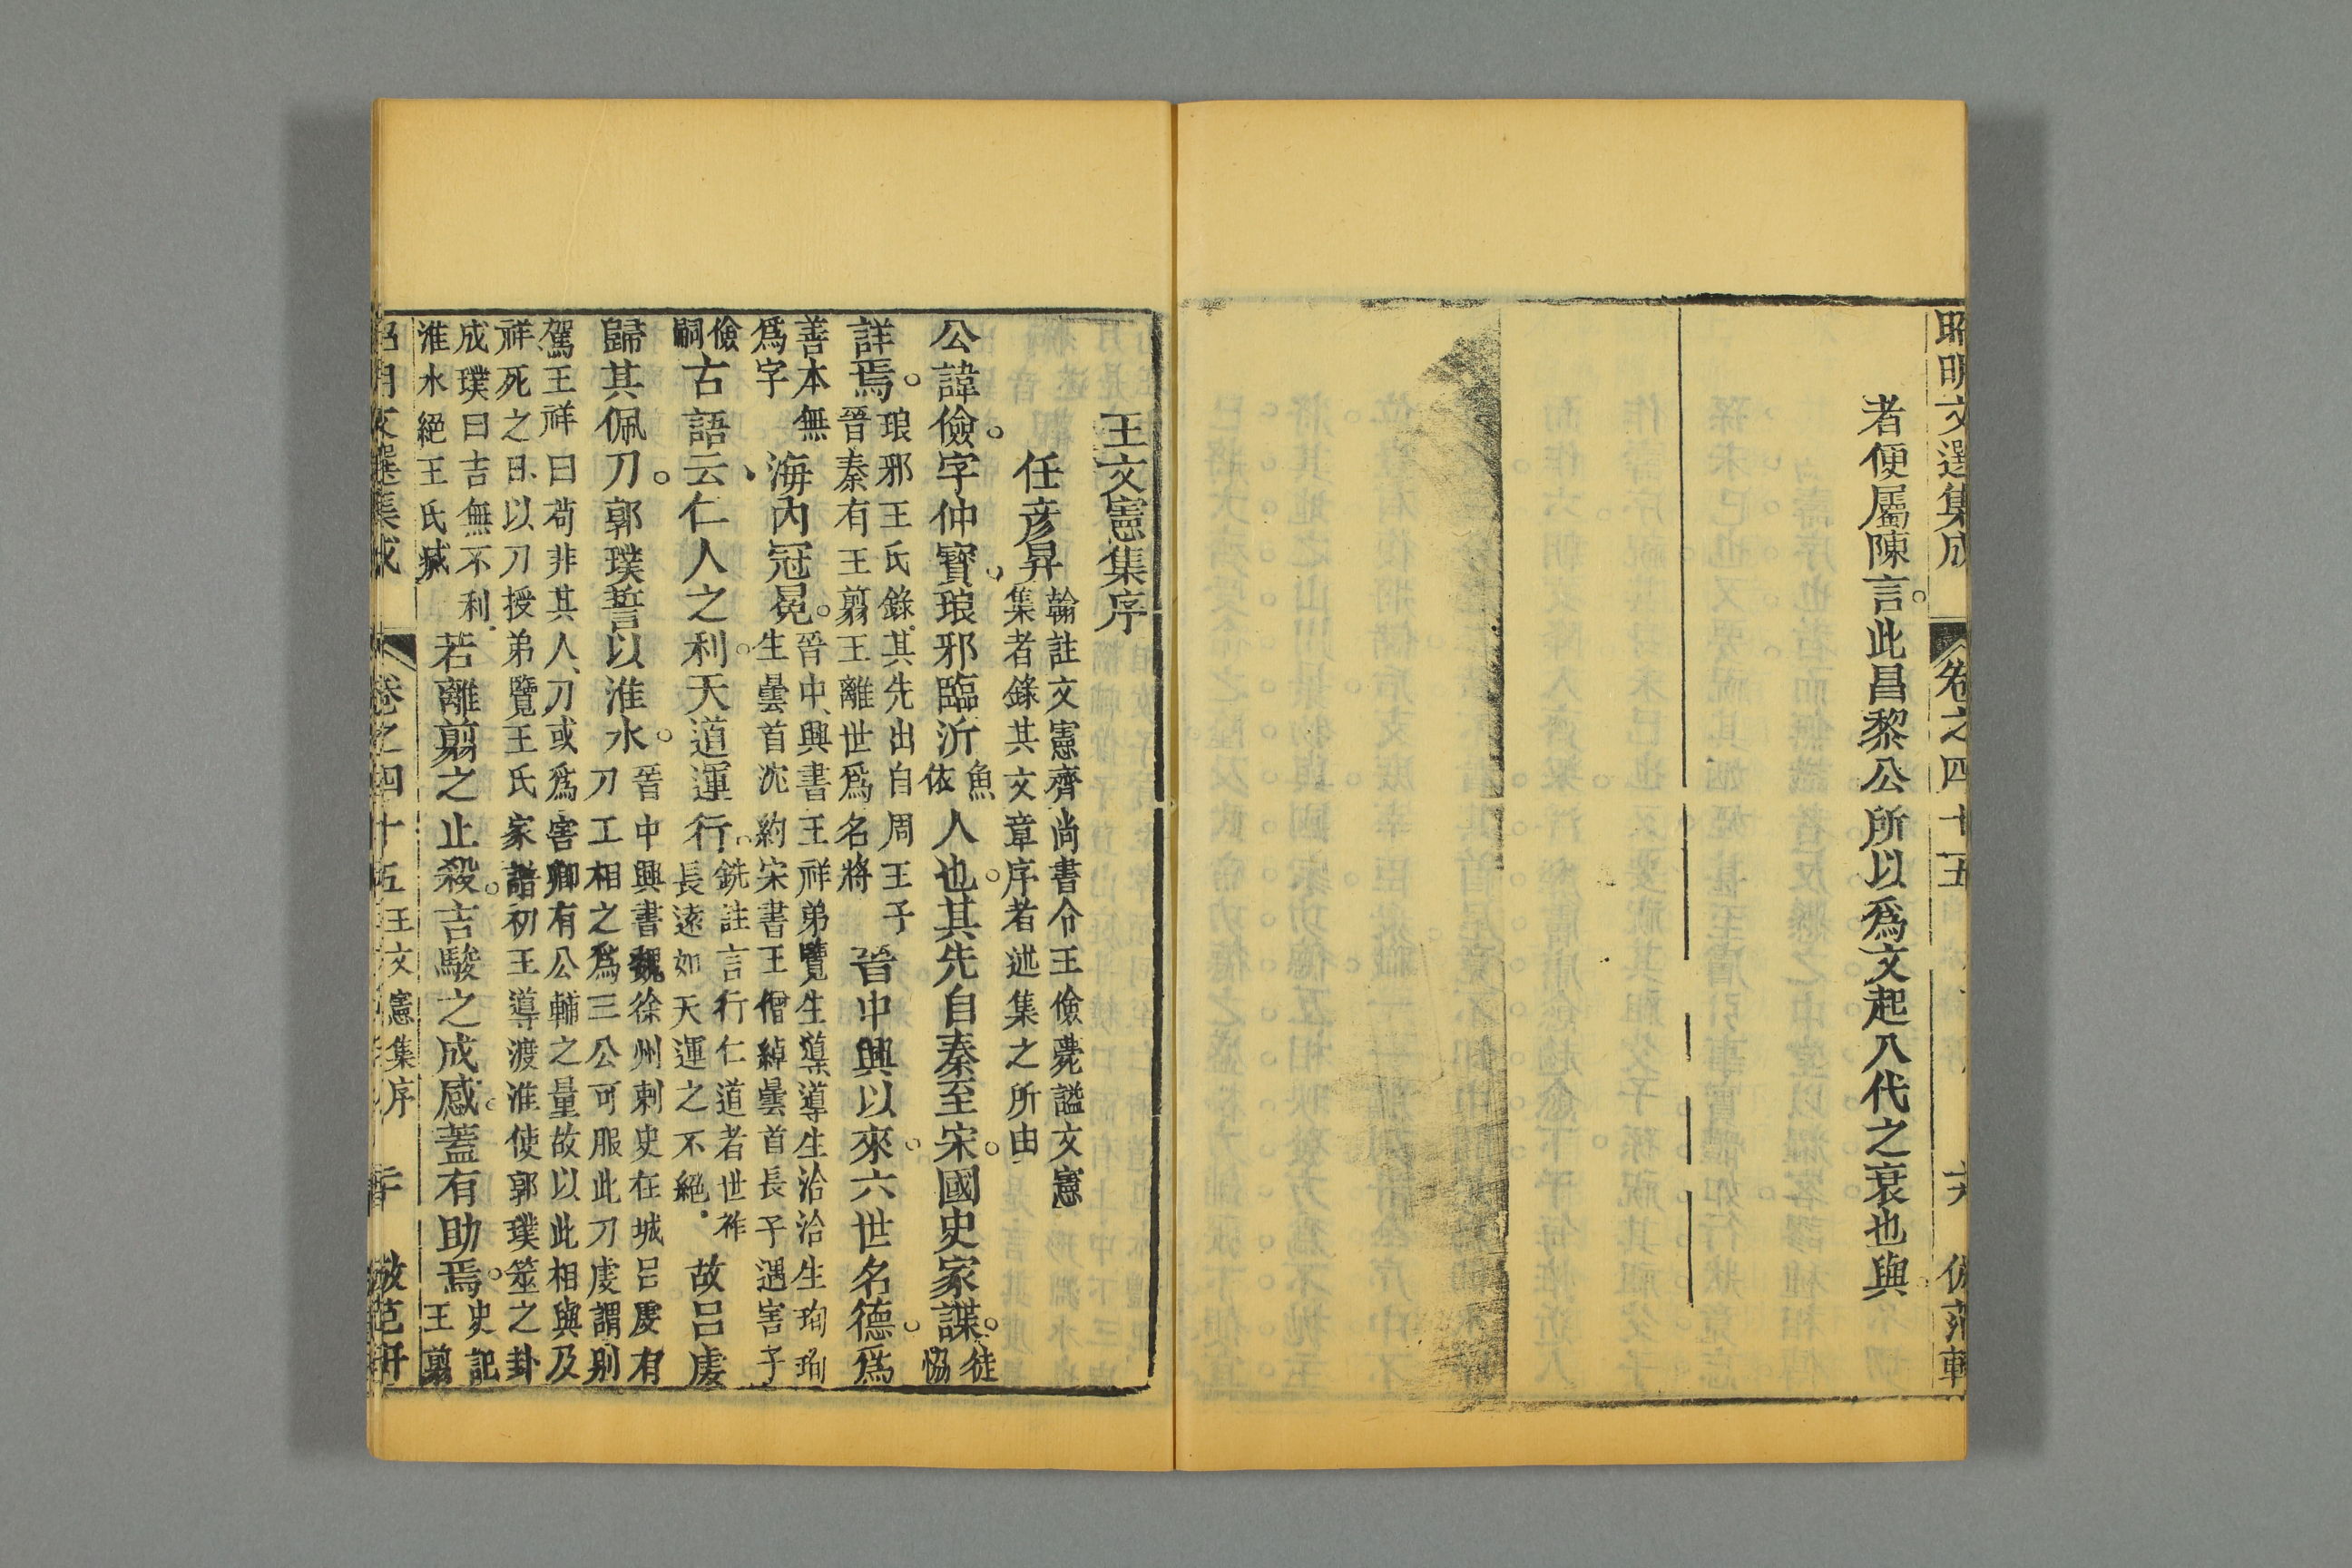 昭明文選集成　卷之四十五　六　倣范軒
者便屬陳言此昌黎公所以爲文起八代之衰也與
王文憲集序
任彦昇
翰註文憲齊尚書令王儉薨謚文憲
集者錄其文章序者述集之所由
公諱儉字仲寳琅邪臨沂
魚
依
人也其先自秦至宋國史家諜
徒
恊
詳焉
琅邪王氏錄其先出自周王子
晉秦有王翦王離世爲名將
晉中興以來六世名德爲
善本無
爲字
海內冠冕
晉中興書王祥弟覽生導導生洽洽生珣珣
生曇首沈約宋書王僧綽曇首長子遇害子
儉
嗣
古語云仁人之利天道運行
銑註言行仁道者世祚
長遠如天運之不絕
故吕虔
歸其佩刀郭璞誓以淮水
晉中興書魏徐州剌史在城吕虔有
刀工相之爲三公可服此刀虔謂别
駕王祥曰苟非其人刀或爲害卿有公輔之量故以此相與及
祥死之日以刀授弟覽王氏家譜初王導渡淮使郭璞筮之卦
成璞曰吉無不利
淮水絕王氏㓕
若離翦之止殺吉駿之成感蓋有助焉
史記
王翦
昭明文選集成　卷之四十五　王文憲集序　倣范軒